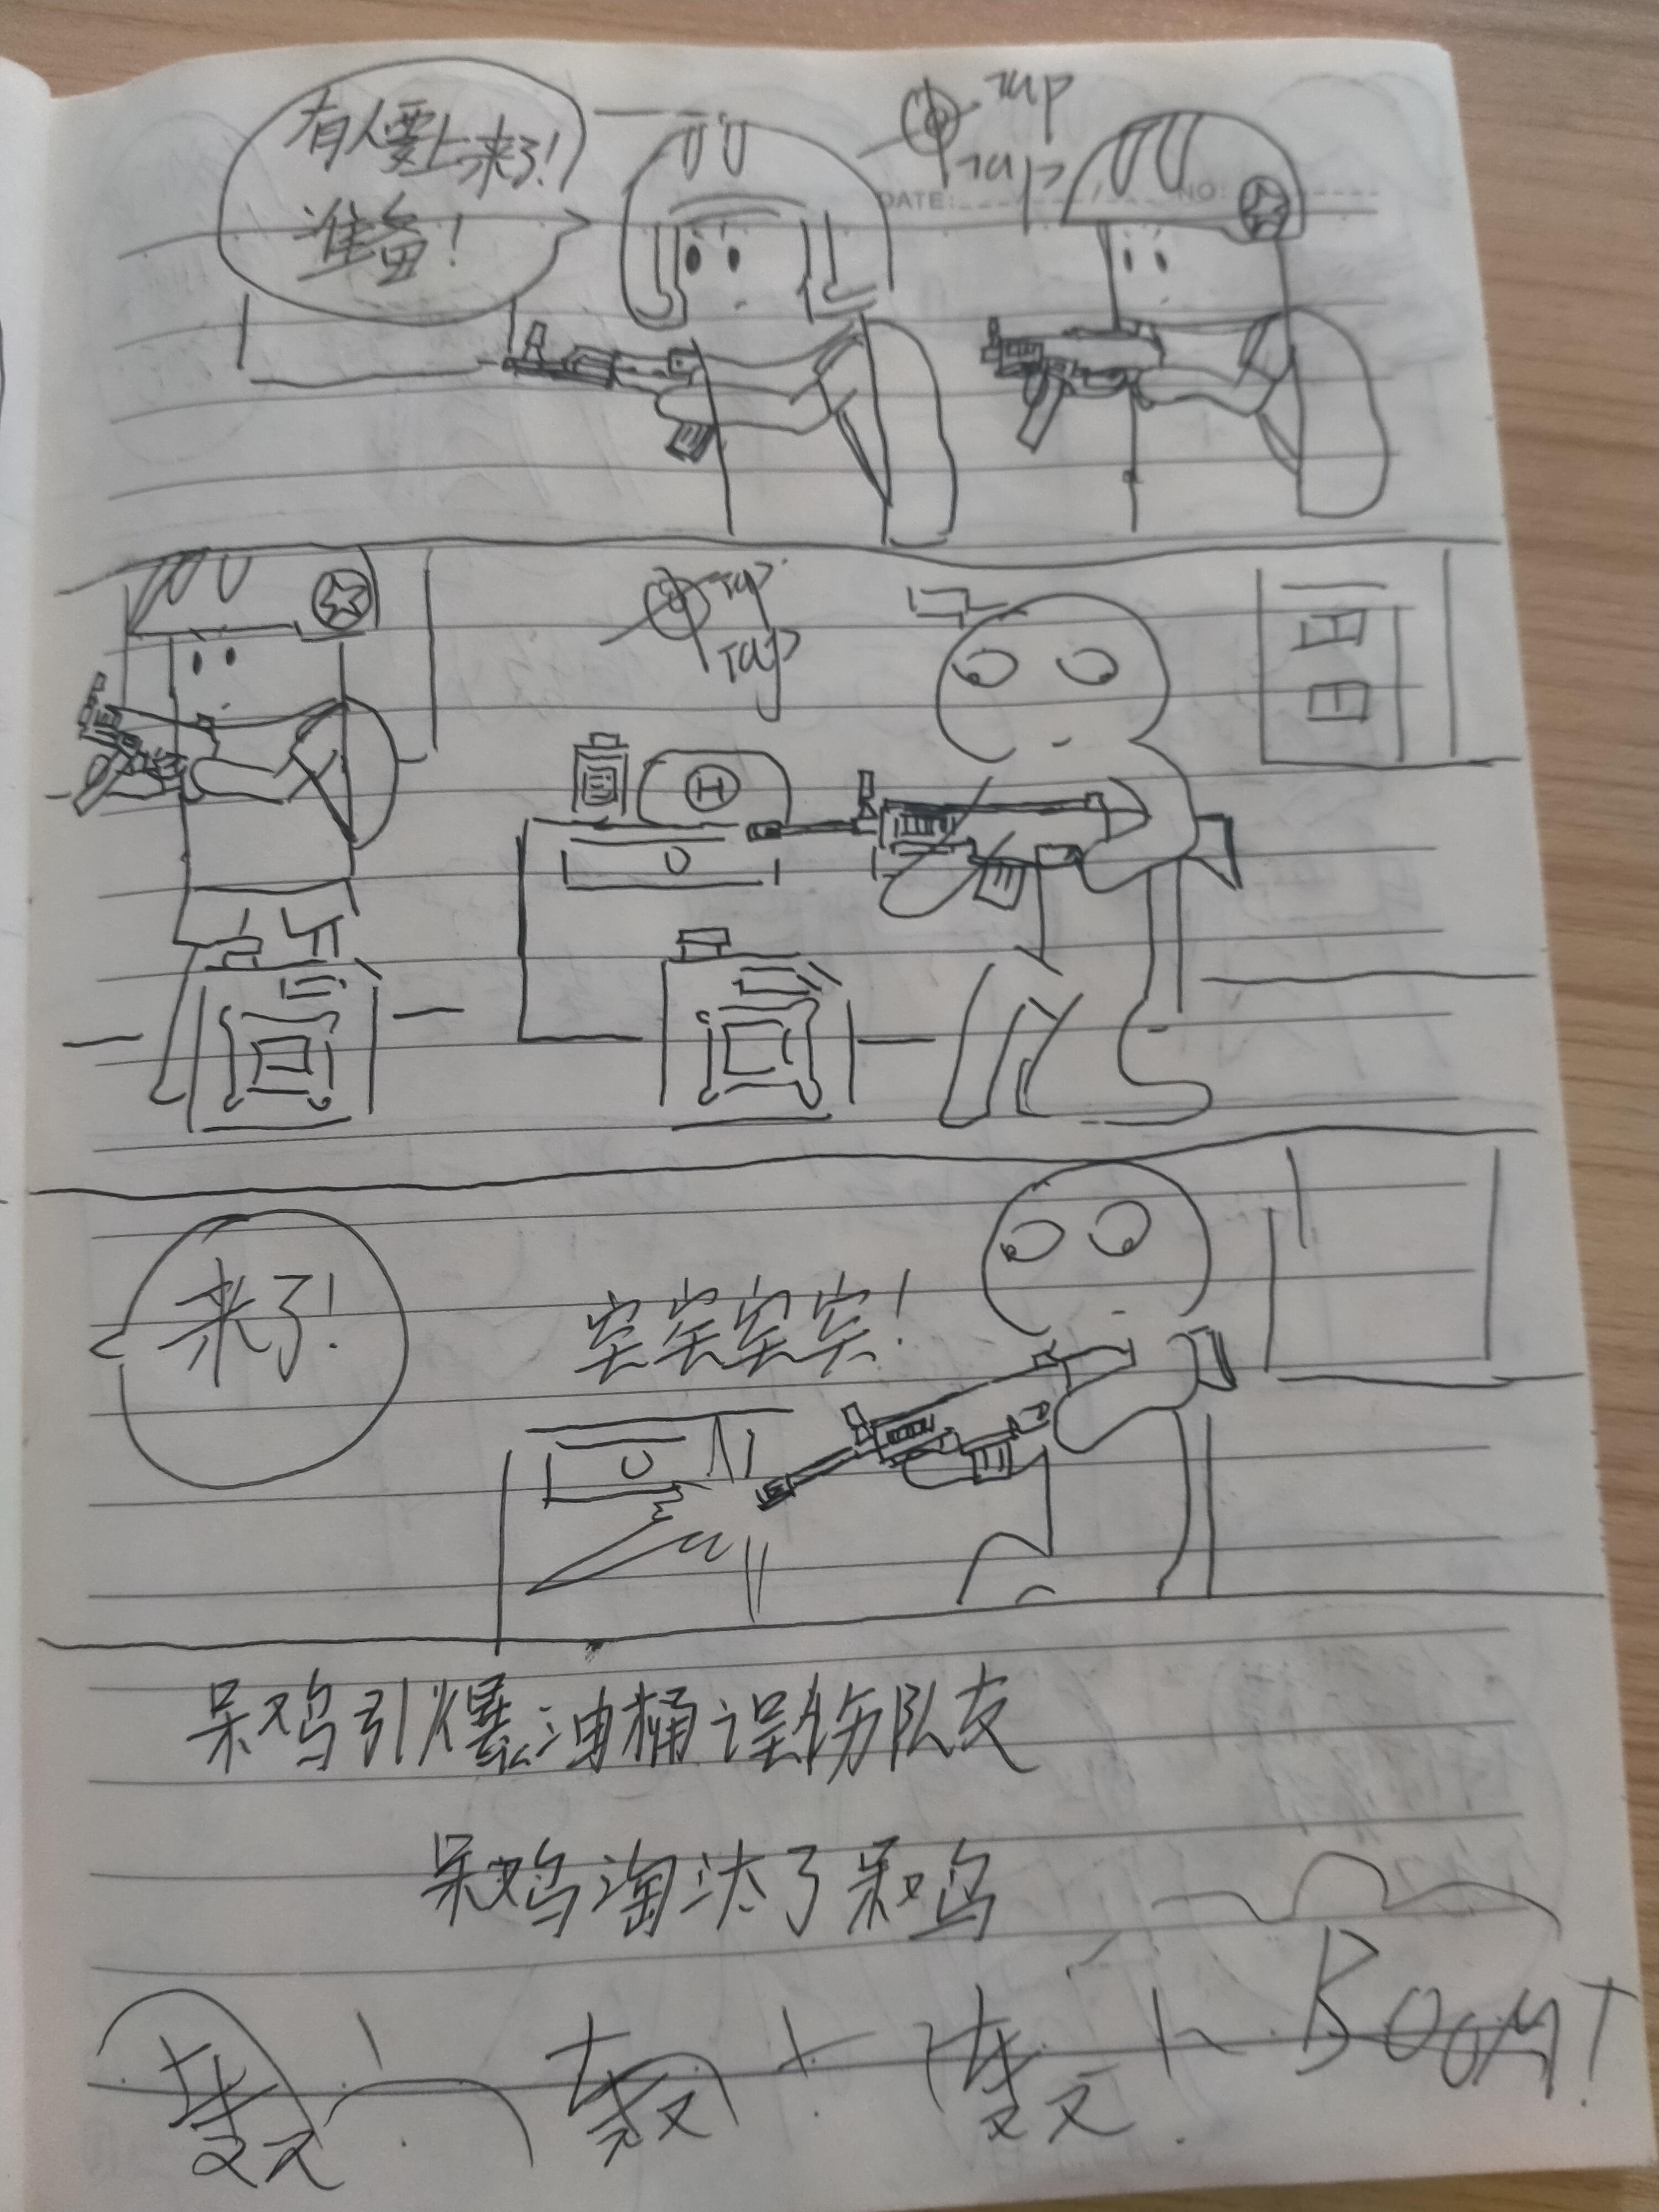 有人要上来了!
准备!
Tap
Tap
DATE: NO:
Tap
Tap
H
来了!
呆鸡引爆油桶误伤队友
呆鸡淘汰了呆鸡
轰
轰
轰
BOOM!